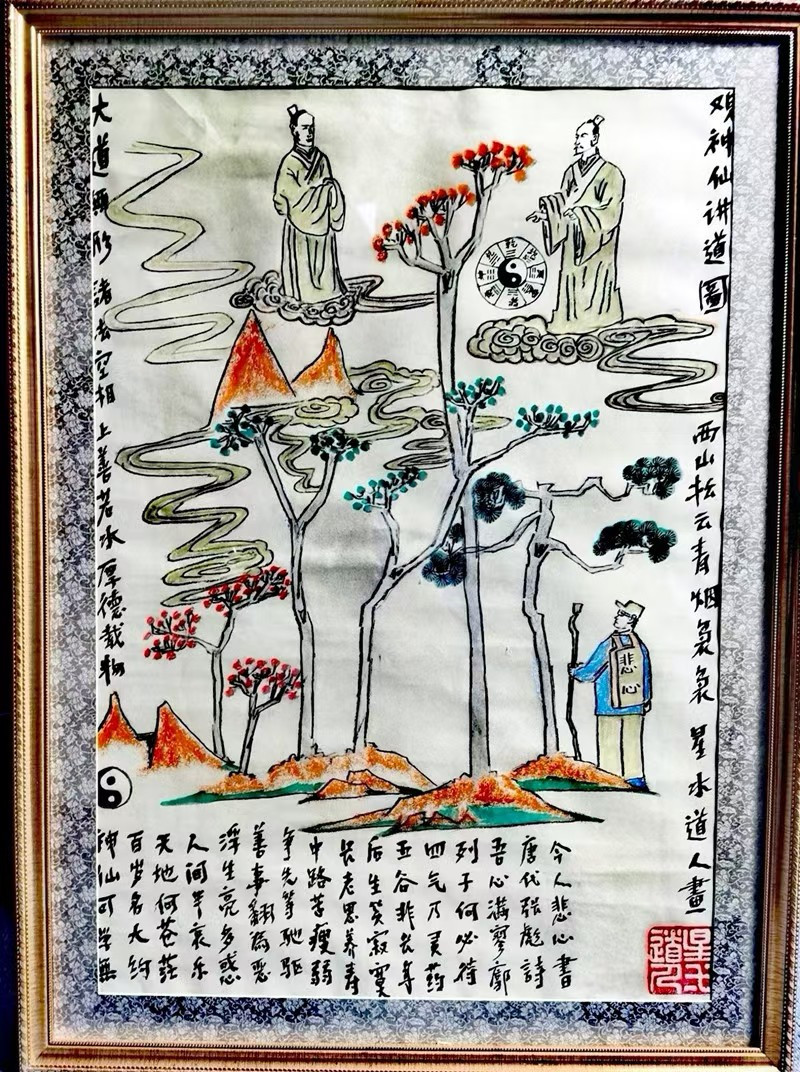 双神仙讲道圖
西山松云青烟袅袅 星水道人畫
星水道人
大道無形 諸法空相 上善若水 厚德载物
悲心
神仙可学無
百岁名大约
天地何苍茫
人间半哀乐
浮生亮多惑
善事翻為恶
争先等驰驱
中路苦瘦弱
长老思养寿
后生笑寂寞
五谷非长年
四气乃灵药
列子何必待
吾心满寥廓
唐代张彪詩
今人悲心書